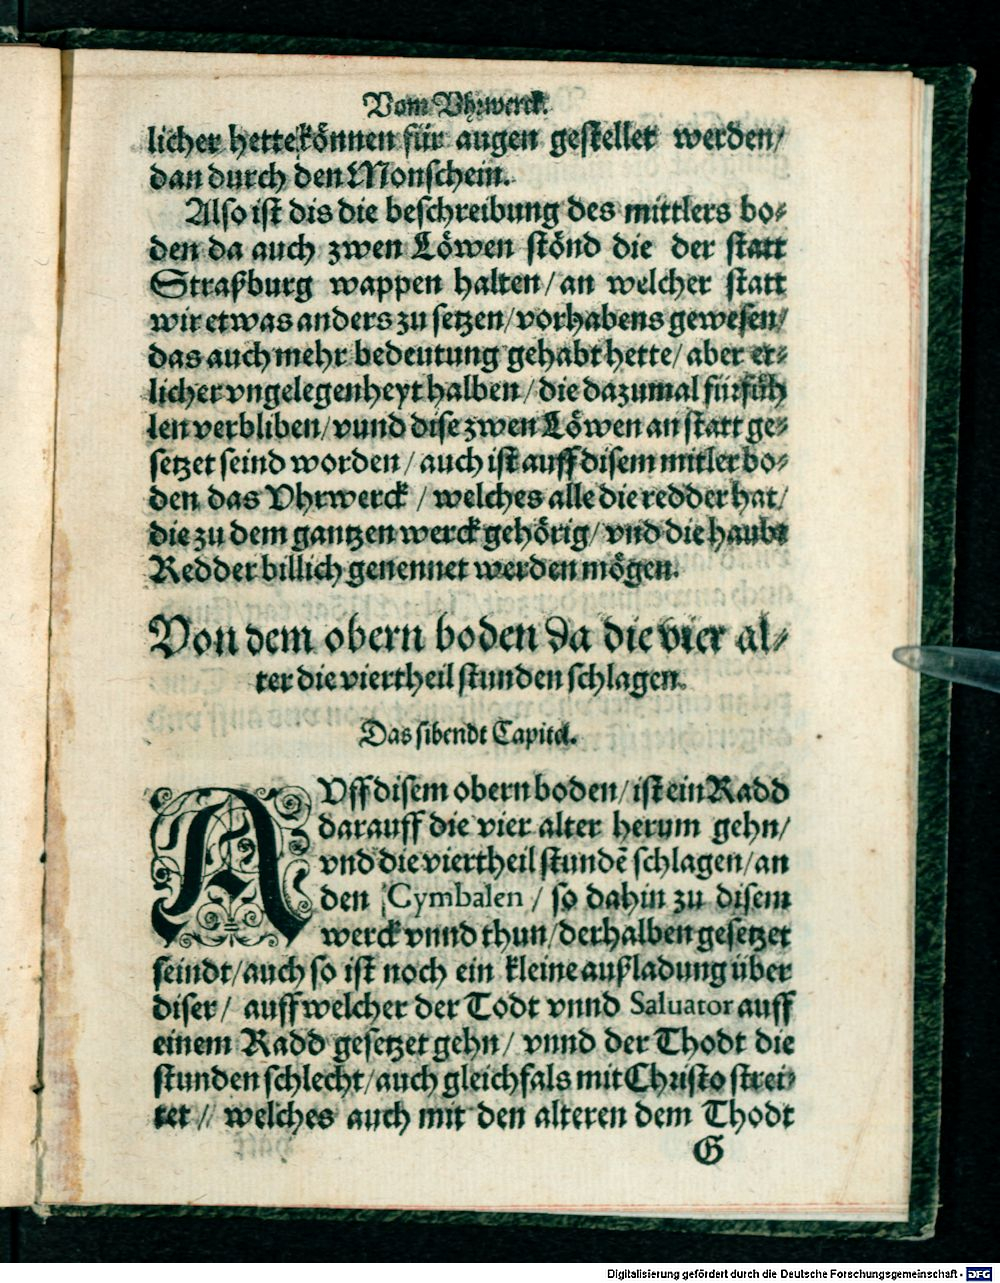 Vom Vhrwerck.
licher hette können für augen gestellet werden/
dan durch den Monschein.
Also ist dis die beschreibung des mittlers bo⸗
den da auch zwen Löwen stönd die der statt
Straßburg wappen halten/ an welcher statt
wir etwas anders zu setzen/ vorhabens gewesen/
das auch mehr bedeutung gehabt hette/ aber et⸗
licher vngelegenheyt halben/ die dazumal fürfüh
len verbliben/ vund dise zwen Löwen an statt ge⸗
setzet seind worden/ auch ist auff disem mitler bo⸗
den das Vhrwerck/ welches alle die redder hat/
die zu dem gantzen werck gehörig/ vnd die haubt
Redder billich genennet werden mögen.
Von dem obern boden da die vier al⸗
ter die viertheil stunden schlagen.
Das sibendt Capitel.
AVff disem obern boden/ ist ein Radd
darauff die vier alter herum gehn/
vnd die viertheil stundē schlagen/ an
den Cymbalen/ so dahin zu disem
werck vnnd thun/ derhalben gesetzet
seindt/ auch so ist noch ein kleine außladung über
diser/ auff welcher der Todt vnnd Saluator auff
einem Radd gesetzet gehn/ vnnd der Thodt die
stunden schlecht/ auch gleichfals mit Christo strei⸗
tet// welches auch mit den alteren dem Thodt
G
Digitalisierung gefördert durch die Deutsche Forschungsgemeinschaft - DFG